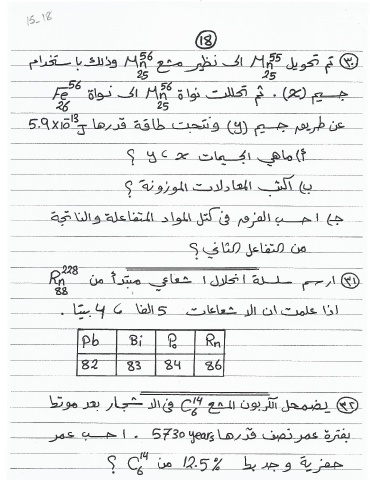 15-18
18
٣٠) تم تحويل Mn⁵⁵₂₅ الى نظير مشع Mn⁵⁶₂₅ وذلك باستخدام
جسيم (x). ثم تحللت نواة Mn⁵⁶₂₅ الى نواة Fe⁵⁶₂₆
عن طريق جسيم (y) ونتجت طاقة قدرها 5.9x10⁻¹³J
أ) ماهي الجسيمات x ، y ؟
ب) اكتب المعادلات الموزونة ؟
ج) احسب الفرق في كتل المواد المتفاعلة والناتجة
من التفاعل الثاني ؟
٣١) ارسم سلسلة انحلال اشعاعي مبتدأ من Rn²²⁸₈₈
اذا علمت ان الاشعاعات 5 الفا ، 4 بيتا .
Pb Bi Po Rn
82 83 84 86
٣٢) يضمحل الكربون المشع C¹⁴₆ في الاشجار بعد موتها
بفترة عمر نصف قدرها 5730 years . احسب عمر
حفرية وجد بها 12.5% من C¹⁴₆ ؟